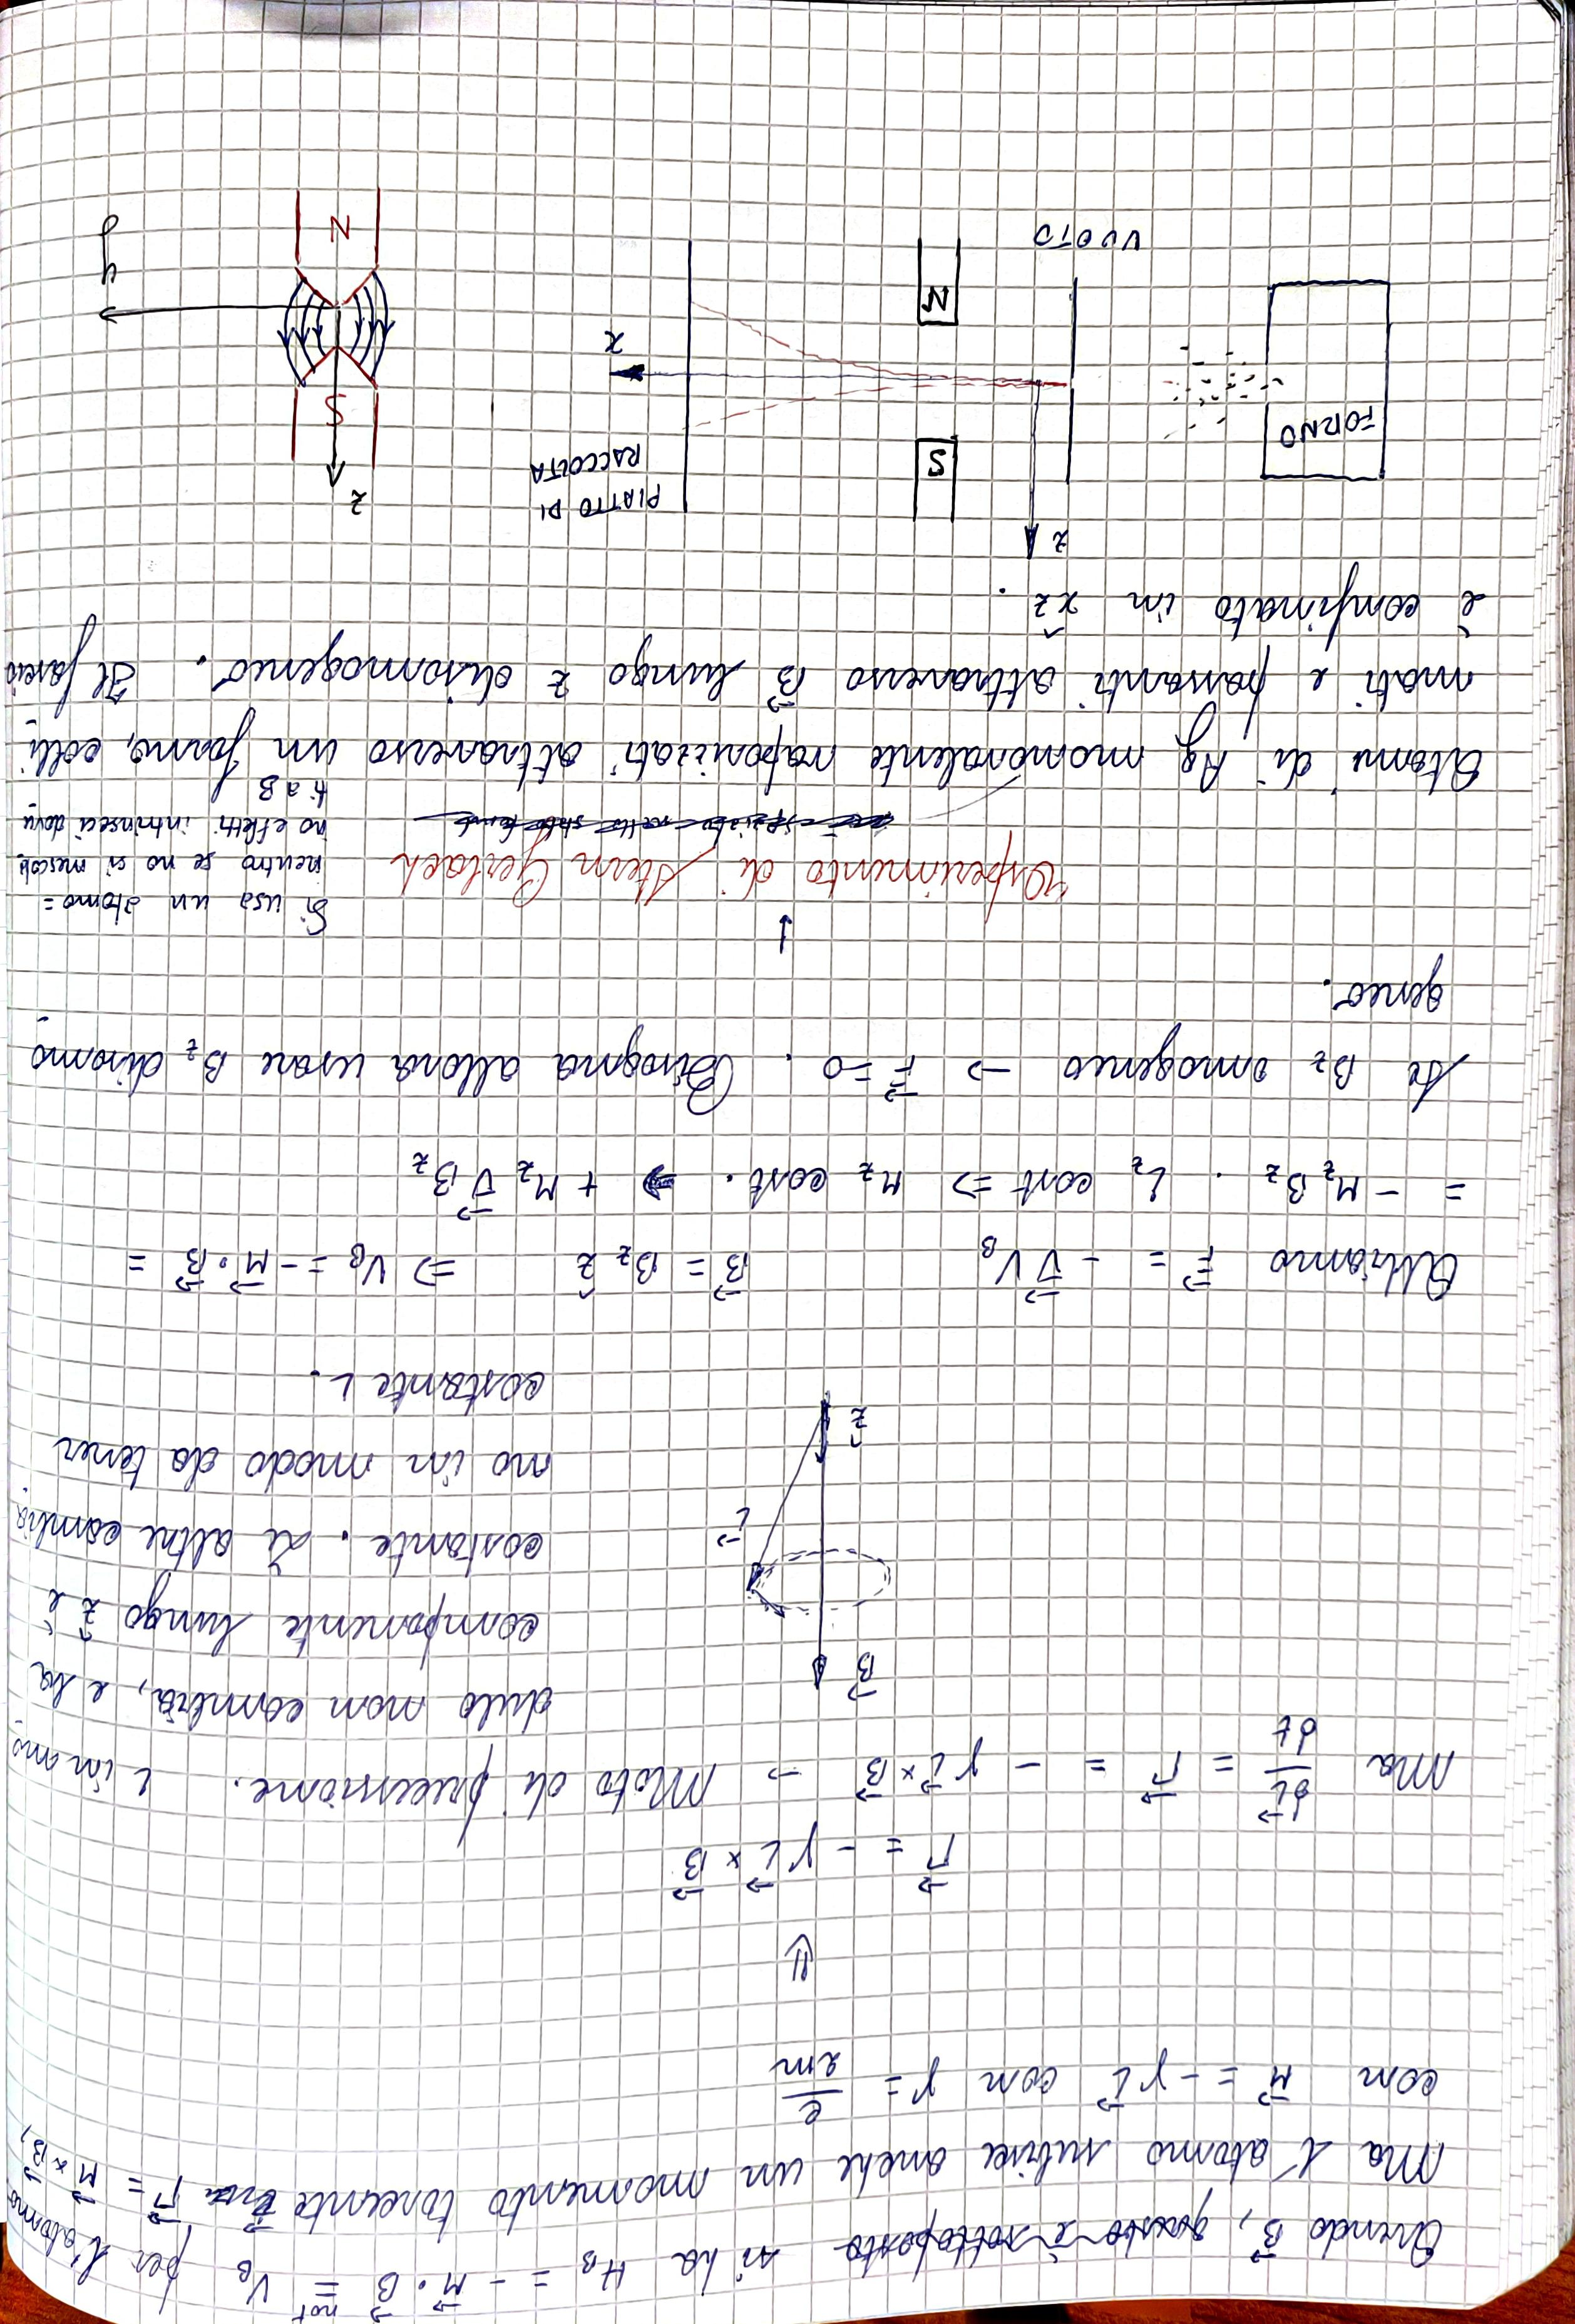 Avendo B⃗, questo è sottoposto si ha H_B = - M⃗ · B⃗ \overset{not}{=} V_B per l'atomo
Ma l'atomo subisce anche un momento torcente Γ⃗ = M⃗ × B⃗,
con M⃗ = - γ L⃗ con γ = e/2m
⇓
Γ⃗ = - γ L⃗ × B⃗
Ma dL⃗/dt = Γ⃗ = - γ L⃗ × B⃗ → Moto di precessione. L in mo
dulo non cambia, e la
componente lungo ẑ è
costante. Le altre cambia
no in modo da tener
costante L.
B⃗
L⃗
ẑ
Abbiamo F⃗ = - ∇⃗ V_B B⃗ = B_z ẑ ⇒ V_B = - M⃗ · B⃗ =
= - M_z B_z . L_z cost ⇒ M_z cost. ⇒ + M_z ∇⃗ B_z
Se B_z omogeneo → F⃗ = 0 . Bisogna allora usare B_z disomo
geneo.
↓
Esperimento di Stern Gerlach
Si usa un atomo =
neutro se no si mescola
no effetti intrinseci dovu
ti a B
Atomi di Ag monovalente vaporizzati attraverso un forno, colli
mati e passanti attraverso B⃗ lungo z disomogeneo. Il fascio
è confinato in x̂z .
z
FORNO
S
N
VUOTO
PIATTO DI
RACCOLTA
x
z
S
N
y